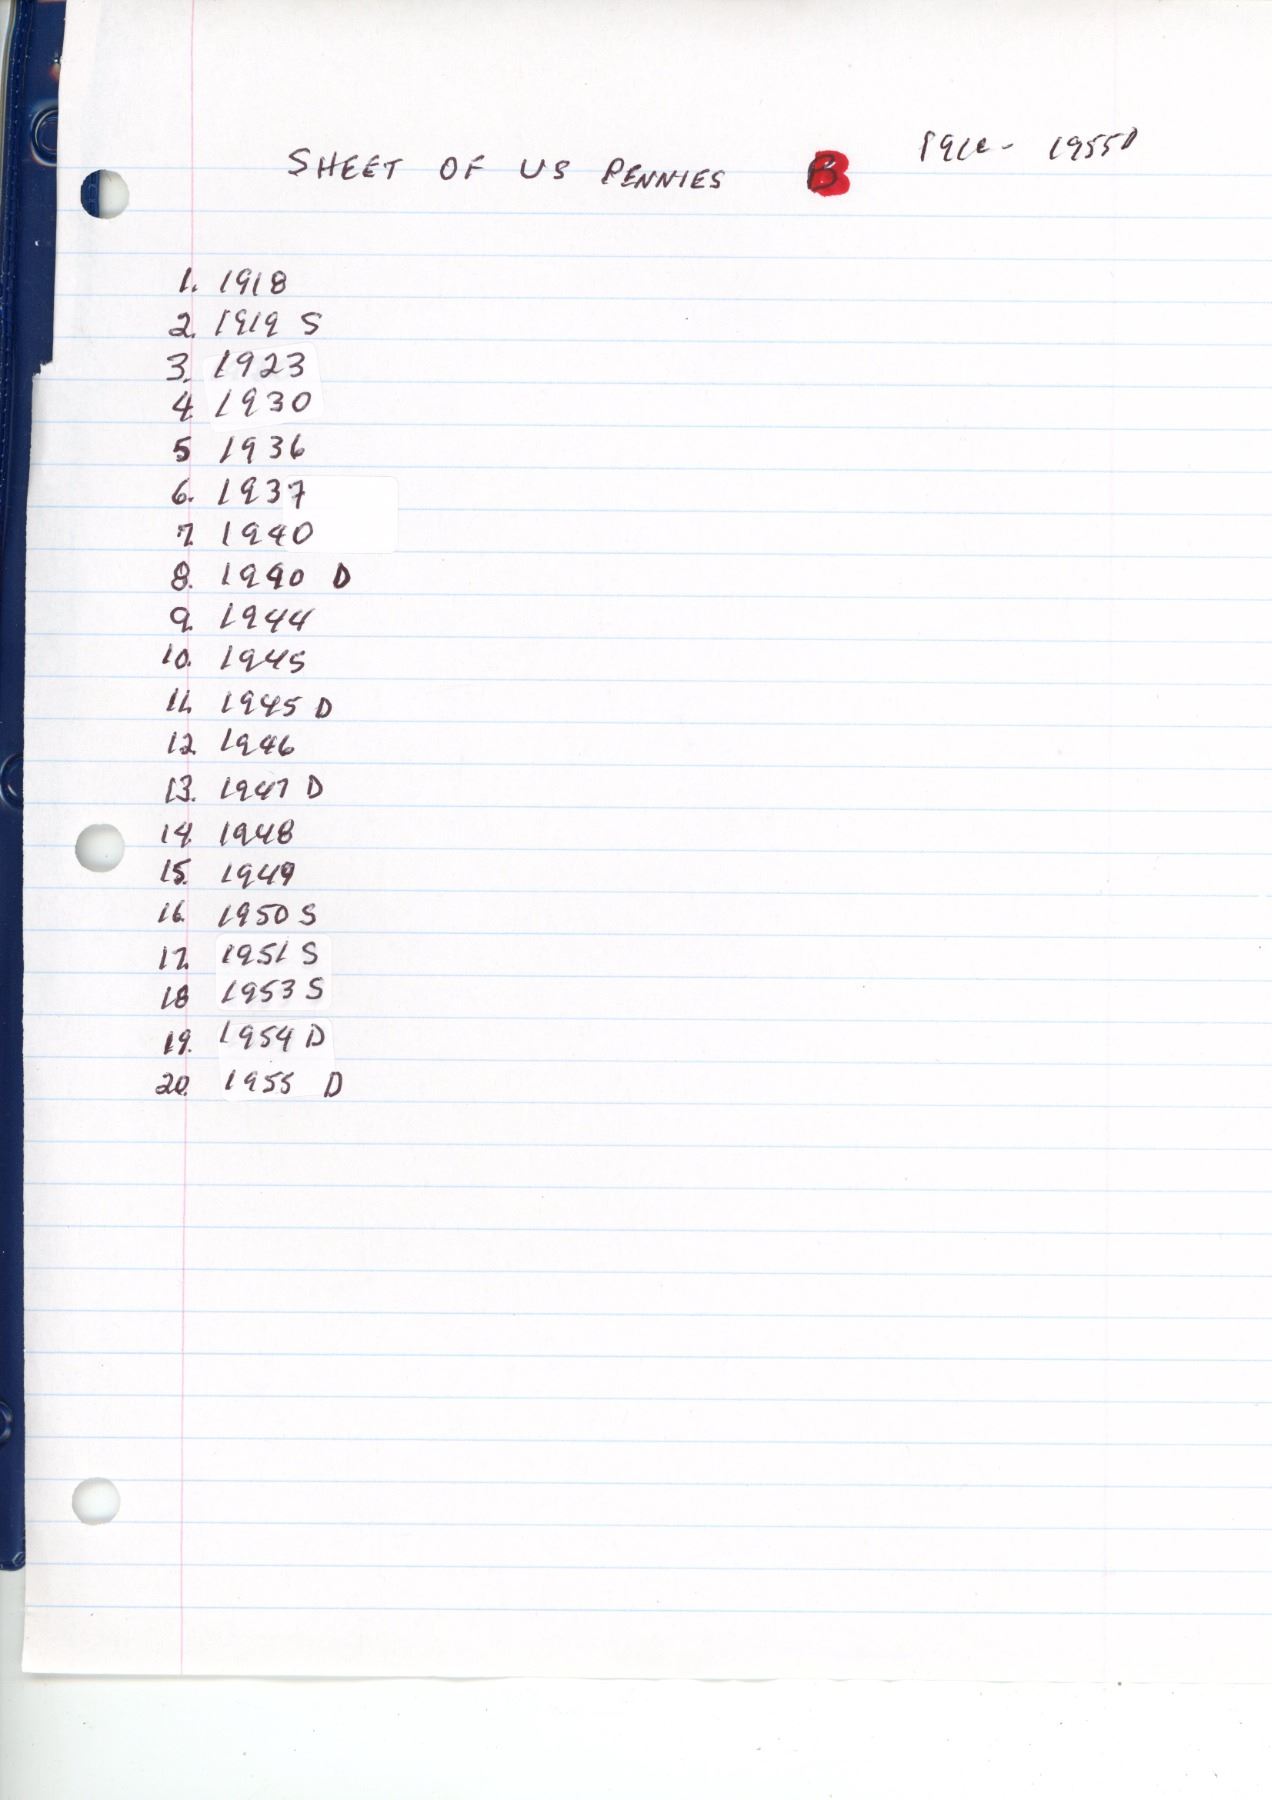 SHEET OF US PENNIES B 1955D
1. 1918
2. 1919 S
3. 1923
4. 1930
5 1936
6. 1937
7. 1940
8. 1940 D
9. 1944
10. 1945
11. 1945 D
12. 1946
13. 1947 D
14. 1948
15. 1949
16. 1950 S
17. 1951 S
18 1953 S
19. 1954 D
20. 1955 D